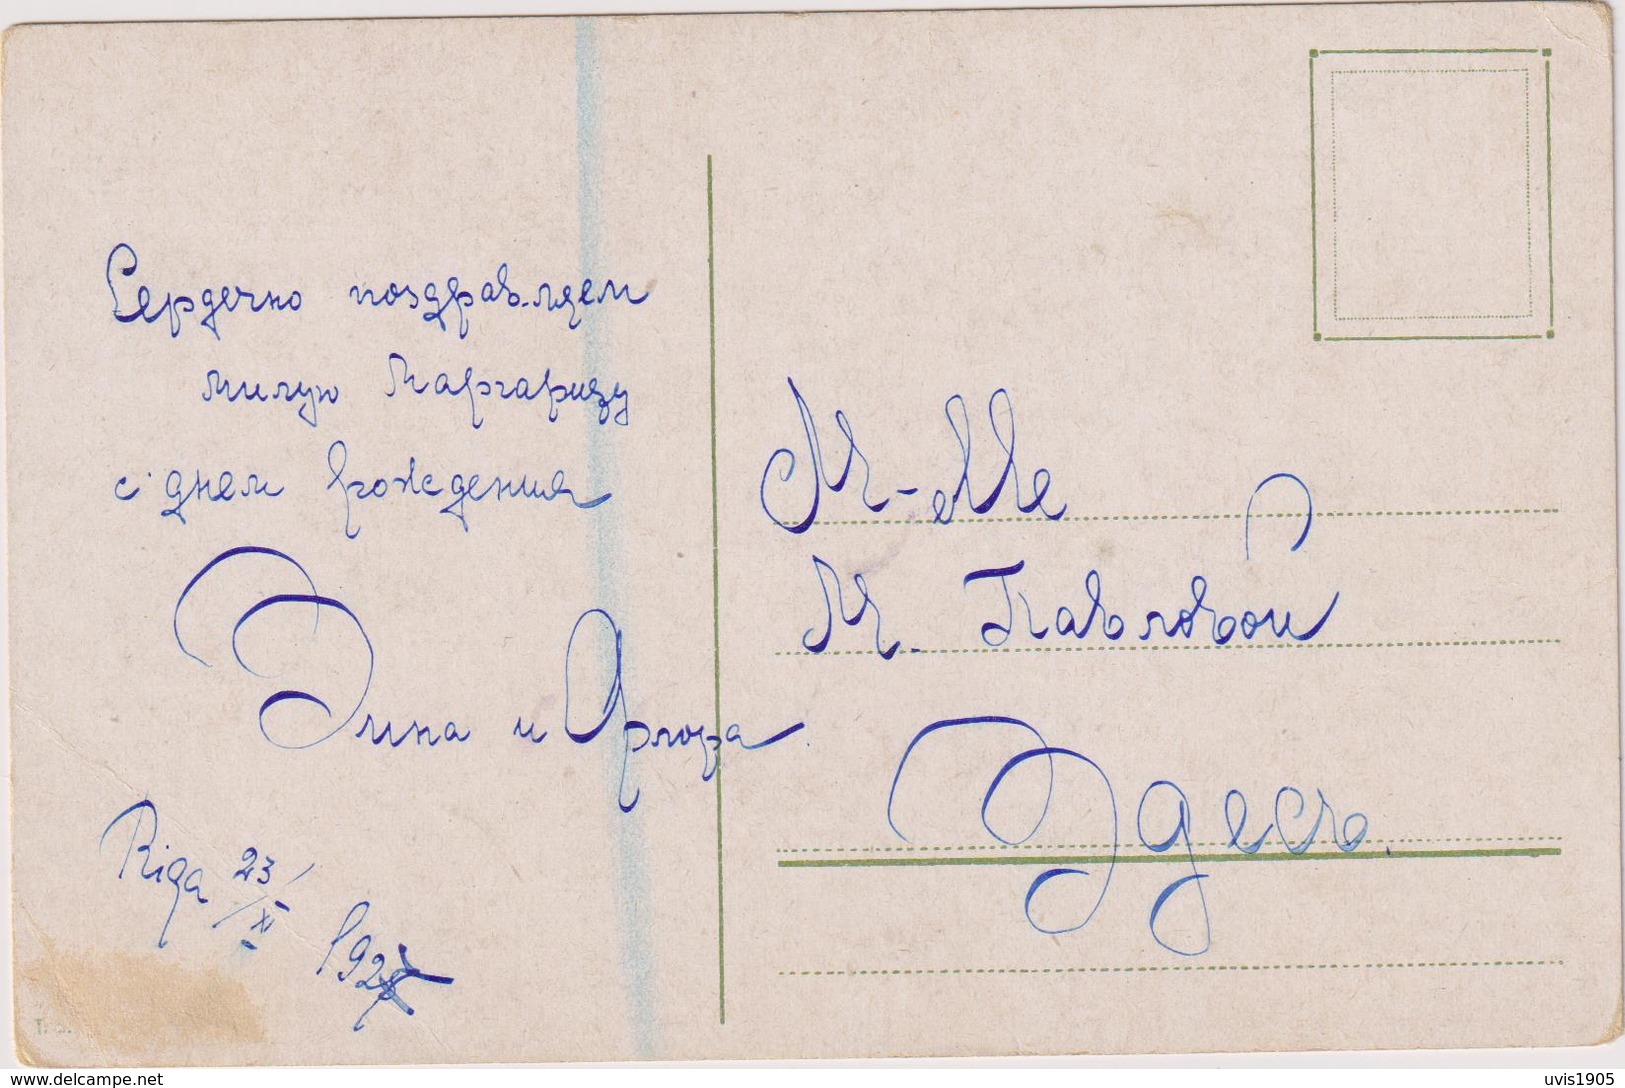 Сердечно поздравляем
милую Маргариту
с днем рождения
Элина и Флора
Riga 23/XI 192
M-elle
М. Павловой
Здесь.
www.delcampe.net
uvis1905